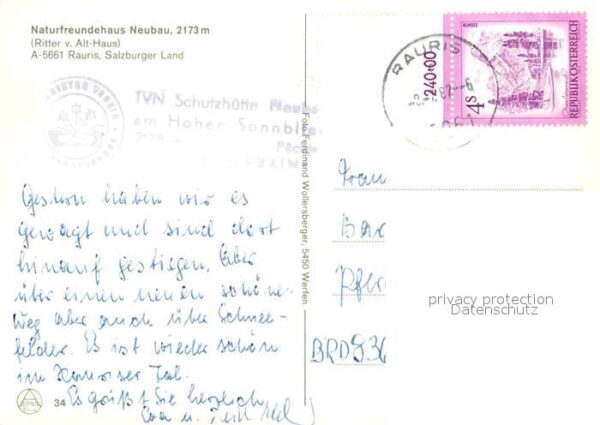 Naturfreundehaus Neubau, 2173 m
(Ritter v. Alt-Haus)
A-5661 Rauris, Salzburger Land
TVN Schutzhütte Neub
am Hohen Sonnbli
Foto Ferdinand Wollersberger, 5450 Werfen
RAURIS
240·00
ALMSEE
4S
REPUBLIK ÖSTERREICH
Gestern haben wir es
gewagt und sind dort
hinauf gestiegen. Aber
über einen neuen schöne
weg aber auch über Schnee-
felder. Es ist wieder schön
im Tal.
Es grüßt Sie herzlich
Frau
Bar
Pfer
BRD 836
privacy protection
Datenschutz
34